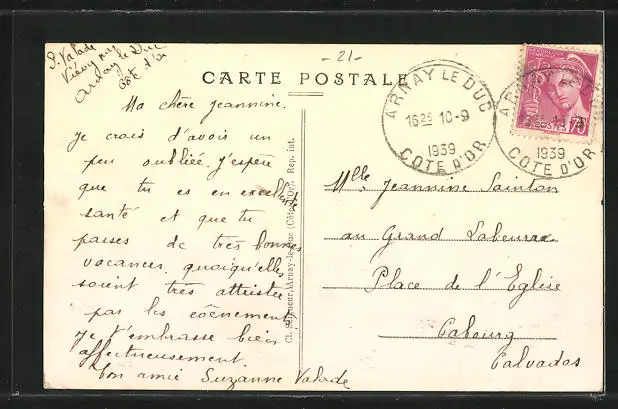 S. Valade
Viévy par
Arnay le Duc
Côte d'or
- 21 -
CARTE POSTALE
ARNAY LE DUC
16 25 10-9
1939
COTE D'OR
ARNAY LE DUC
16 25 10-9
1939
COTE D'OR
POSTES 70
Ma chère Jeannine.
Je crois d'avoir un
peu oubliée. J'espère
que tu es en excellente
santé et que tu
passes de très bonnes
vacances, quoiqu'elles
soient très attristées
par les évènements
Je t'embrasse bien
affectueusement.
ton amie Suzanne Valade
Arnay-le-Duc (Côte-d'Or). Rep. int.
Mlle Jeannine Sainton
au Grand Laboureur
Place de l'Eglise
Cabourg
Calvados